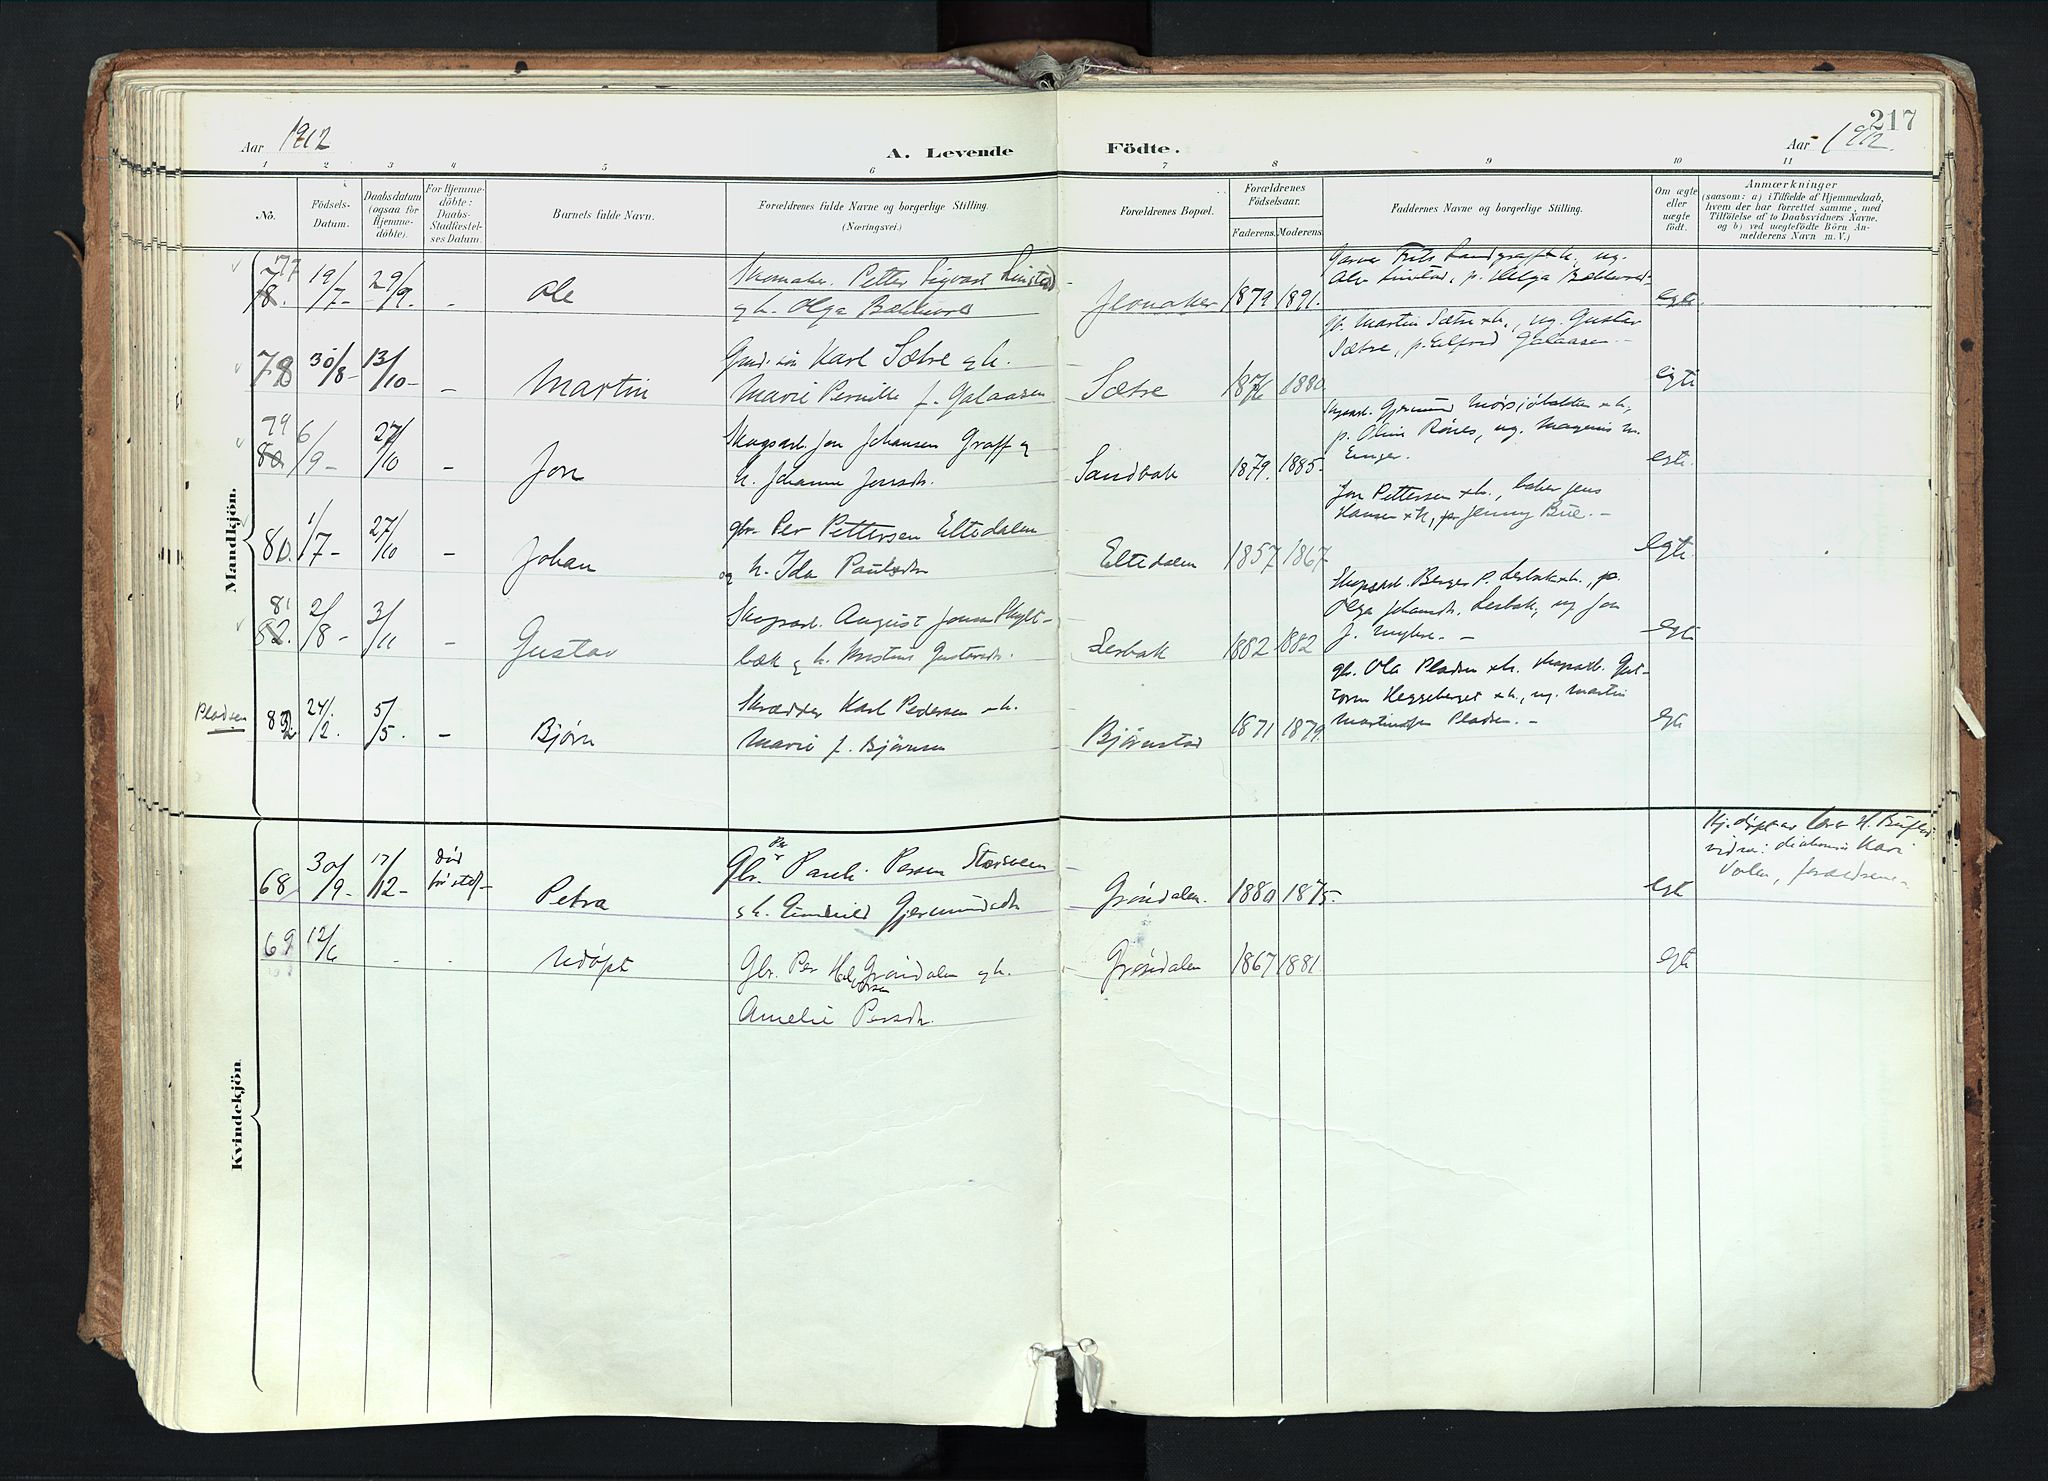 217
Aar 1912
A. Levende Födte.
Aar 1912.
1 2 3 4 5 6 7 8 9 10 11
No.
Födsels-
Datum.
Daabsdatum
(ogsaa for
Hjemme-
döbte).
For Hjemme-
döbte:
Daabs-
Stadfæstel-
ses Datum.
Barnets fulde Navn.
Forældrenes fulde Navne og borgerlige Stilling.
(Næringsvei.)
Forældrenes Bopæl.
Forældrenes
Födselsaar.
Faderens. Moderens.
Faddernes Navne og borgerlige Stilling.
Om ægte
eller
uægte
født.
Anmærkninger
(saasom: a) i Tilfælde af Hjemmedaab,
hvem der har forrettet samme, med
Tilföielse af to Daabsvidners Navne,
og b) ved uegtefödte Börn An-
melderens Navn m. V.)
Mandkjön.
77
78. 19/7- 29/9. - Ole
Skomaker Petter Sigvart Linstad
og h. Olga Bækhus
1879 1891.
egte
78 30/8- 13/10- - Martin
Karl Sætre og h.
Marie Pernille f. Galaasen
Sætre 1876 1880.
gb. Martin Sætre &h., ug. Gustav
Sætre, p. Galaasen. -
egte
79
80 6/9- 27/10 - Jon
Skogsarb. Jon Johansen Graff og
h. Johanne Jonsdtr.
Sandbak 1879. 1885-
Skogsarb. Gjermund &h.,
p. Oline Rönes, ug. Magnus M.
Enger.
egte.
80. 1/7- 27/10 - Johan
gbr. Per Pettersen Eltedalen
og h. Ida Paulsdtr
Eltedalen 1857 1867
Jon Pettersen &h., Jens
Hansen &h, p. Jenny Bue. -
egte
81
82. 2/8- 3/11 - Gustav
Skogsarb. August Jonsen Skylt-
bæk og h. Kristine Gustavsdtr.
Lerbak 1882 1882
Skogsarb. Berger P. Lerbak &h., p.
Olga Johansdtr. Lerbak, ug Jon
J. -
egte
Pladsen
82 24/2. 5/5. - Bjørn
Skrædder Karl Pedersen &h.
Marie f. Bjørnsen
Bjørnstad 1871 1879.
gb. Ola Pladsen &h. skogsarb. Gut-
torm Heggeberget &h., ug. Martin
Martinsen Pladsen. -
egte
Kvindekjön
68 30/9- 17/12- død
før stadf- Petra
Gbr. Paul Persen Storsveen
&h. Gunhild Gjermundsdtr
Grøndalen. 1880 1875-
egte
Hj.døpt av lærer H.
vidner: Kari
forældrene-
69 12/6 - - Udøpt
Gbr. Per Halvorsen Grøndalen og h.
Amelie Persdtr.
Grøndalen 1867 1881.
egte
Kvindekjön